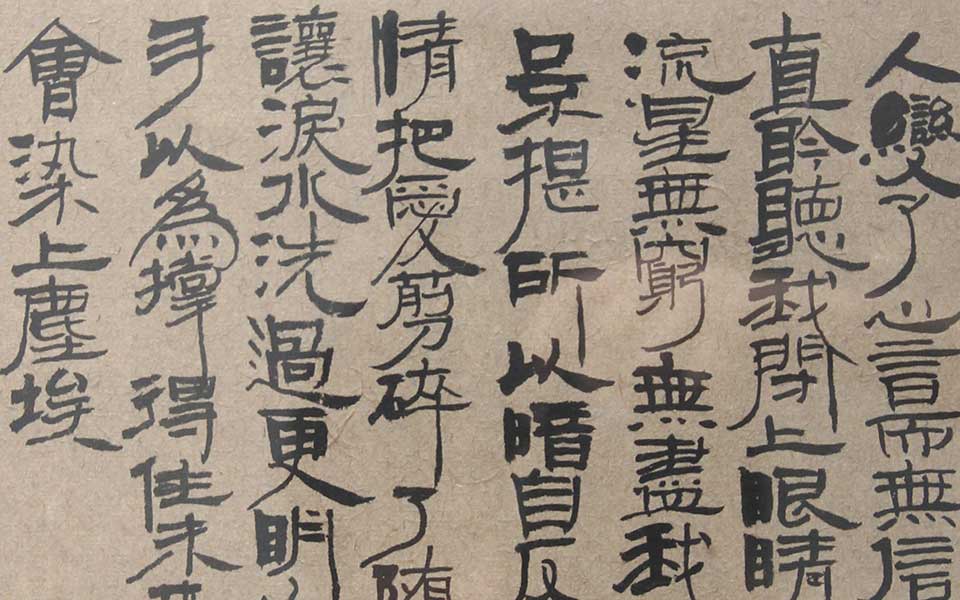 人變了心言而無信
直聆聽我閉上眼睛
流星無窮無盡我
所以暗自反
情把愛剪碎了随
讓淚水洗過更明
手以為撐得住未
會染上塵埃